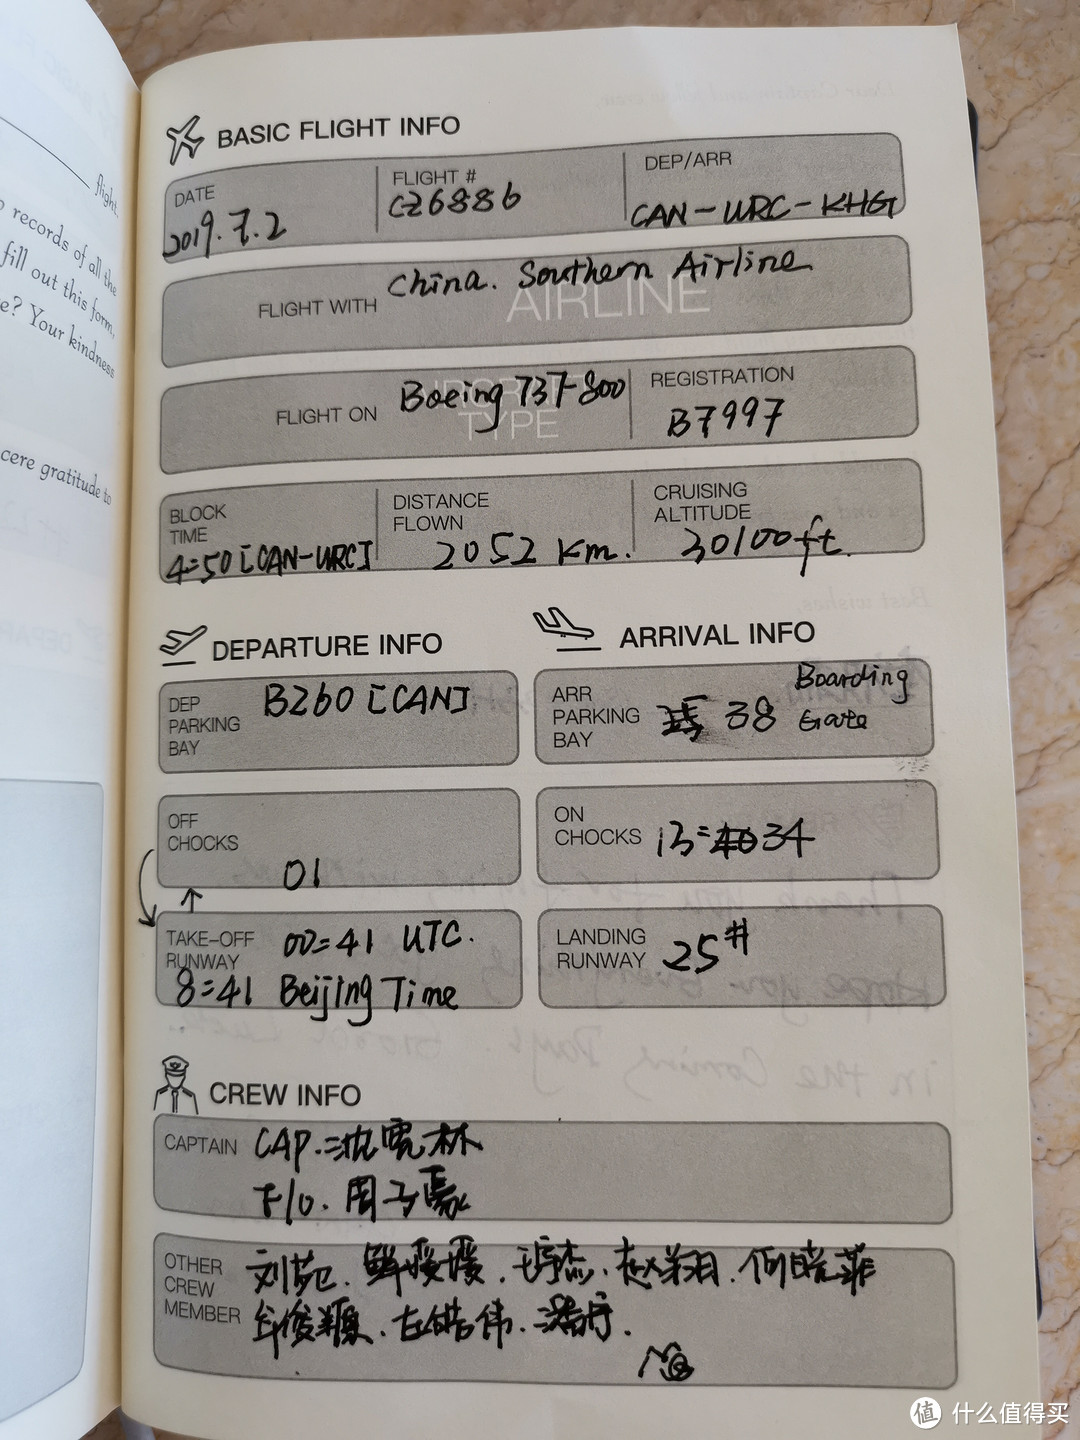 flight.
records of all the
fill out this form,
e? Your kindness
cere gratitude to
BASIC FLIGHT INFO
DATE
2019.7.2
FLIGHT #
CZ6886
DEP/ARR
CAN-URC-KHG
FLIGHT WITH
AIRLINE
China. Southern Airline
FLIGHT ON
TYPE
Boeing 737-800
REGISTRATION
B7997
BLOCK
TIME
4:50 [CAN-URC]
DISTANCE
FLOWN
2052 Km.
CRUISING
ALTITUDE
30100ft.
DEPARTURE INFO
DEP
PARKING
BAY
B260 [CAN]
OFF
CHOCKS
01
TAKE-OFF
RUNWAY
00:41 UTC.
8:41 Beijing Time
ARRIVAL INFO
ARR
PARKING
BAY
38 Boarding
Gate
ON
CHOCKS
13:34
LANDING
RUNWAY
25#
CREW INFO
CAPTAIN
CAP. 林
F/O. 周子豪
OTHER
CREW
MEMBER
刘苑. 鲜媛媛. 杰. 赵翔. 何晓菲
俊. 伟.
值 什么值得买